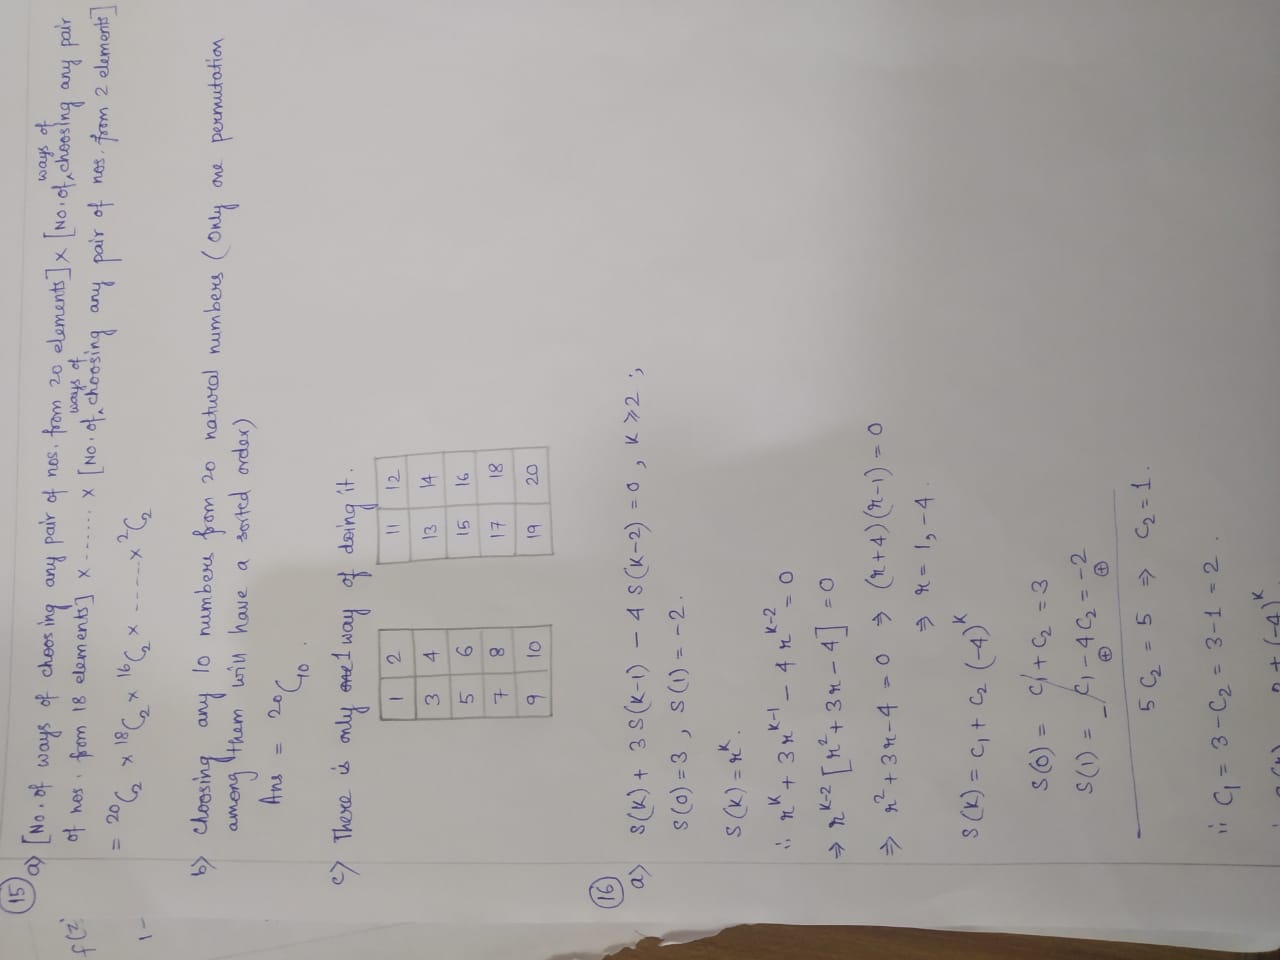 15
a) [No. of ways of choosing any pair of nos. from 20 elements] x [No. of ways of choosing any pair
of nos. from 18 elements] x ...... x [No. of ways of choosing any pair of nos. from 2 elements]
= 20C2 x 18C2 x 16C2 x ......x 2C2
b) choosing any 10 numbers from 20 natural numbers (only one permutation
among them will have a sorted order)
Ans = 20C10.
c) There is only 1 way of doing it.
1 2
3 4
5 6
7 8
9 10
11 12
13 14
15 16
17 18
19 20
16
a) S(K) + 3S(K-1) - 4S(K-2) = 0, K ≥ 2;
S(0) = 3, S(1) = -2.
S(K) = r^K.
∴ r^K + 3r^K-1 - 4r^K-2 = 0
⇒ r^K-2 [r² + 3r - 4] = 0
⇒ r² + 3r - 4 = 0 ⇒ (r+4)(r-1) = 0
⇒ r = 1, -4.
S(K) = C1 + C2 (-4)^K
S(0) = C1 + C2 = 3
S(1) = C1 - 4C2 = -2
- ⊕ ⊕
5C2 = 5 ⇒ C2 = 1.
∴ C1 = 3 - C2 = 3 - 1 = 2.
f(z)
1-